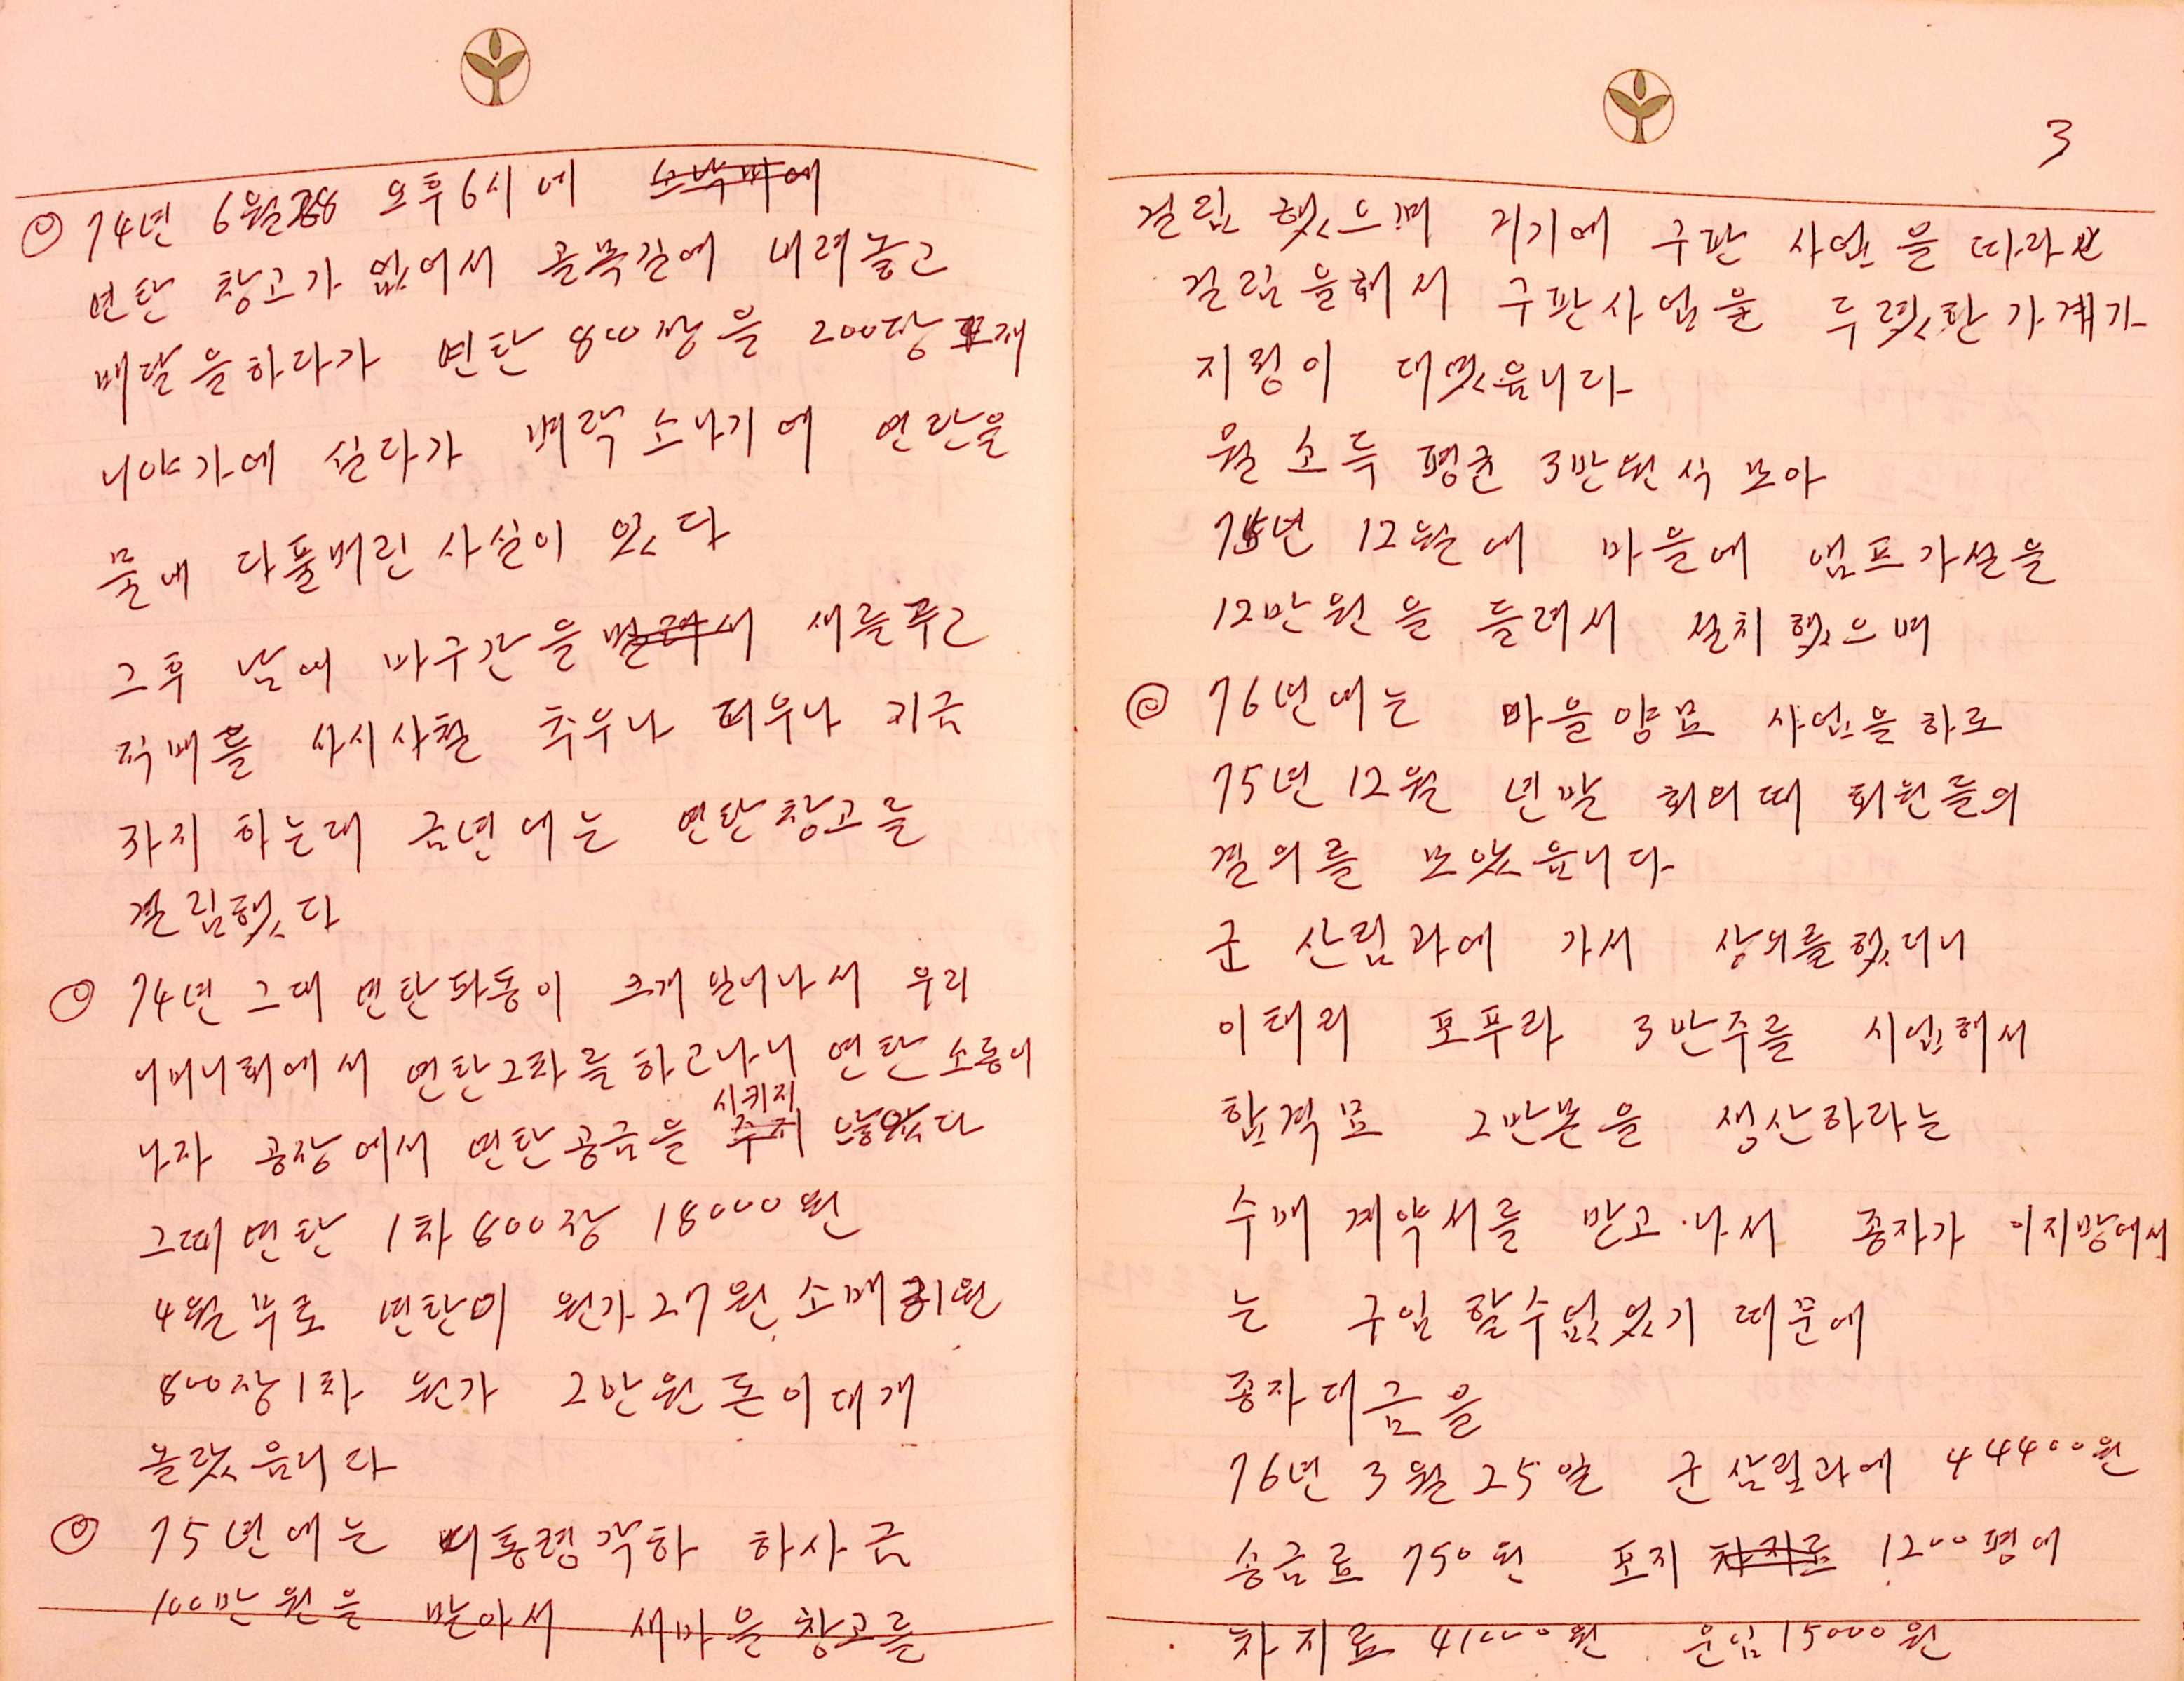 74년 6월28 오후6시에
연탄 창고가 없어서 골목길에 내려놓고
배달을하다가 연탄 800장을 200장째
니야가에 실다가 벼락 소나기에 연탄을
물에 다풀버린 사실이 있다
그후 남에 마구간을 빌려서 새를주고
직매를 사시사철 추우나 더우나 지금
까지 하는대 금년에는 연탄창고를
건립했다
74년 그때 연탄파동이 크게 일너나서 우리
어머니회에서 연탄2차를하고나니 연탄소동이
나자 공장에서 연탄공급을 시키지 않았다
그때연탄 1차800장 18000원
4월부로 연탄이 원가27원 소매31원
800장1차 원가 2만원돈이대개
놀랐읍니다
75년에는 대통령각하 하사금
100만원을 받아서 새마을창고를
3
걸립 했으며 거기에 구판 사업을 따라
걸립을해서 구판사업을 두렷한가계가
지정이 대였읍니다
월소득 평균 3만원식 모아
75년 12월에 마을에 앰프가설을
12만원을 들려서 설치했으며
76년에는 마을양묘 사업을하로
75년12월 년말 회의때 회원들의
결의를 모았읍니다
군 산림과에 가서 상의를했더니
이태리 포푸라 3만주를 시업해서
합격묘 2만본을 생산하라는
수매 계약서를 받고나서 종자가 이지방에서
는 구입 할수없었기 때문에
종자대금을
76년 3월25일 군삼림과에 44400원
송금료 750원 포지 1200평에
차지료 41000원 운임15000원